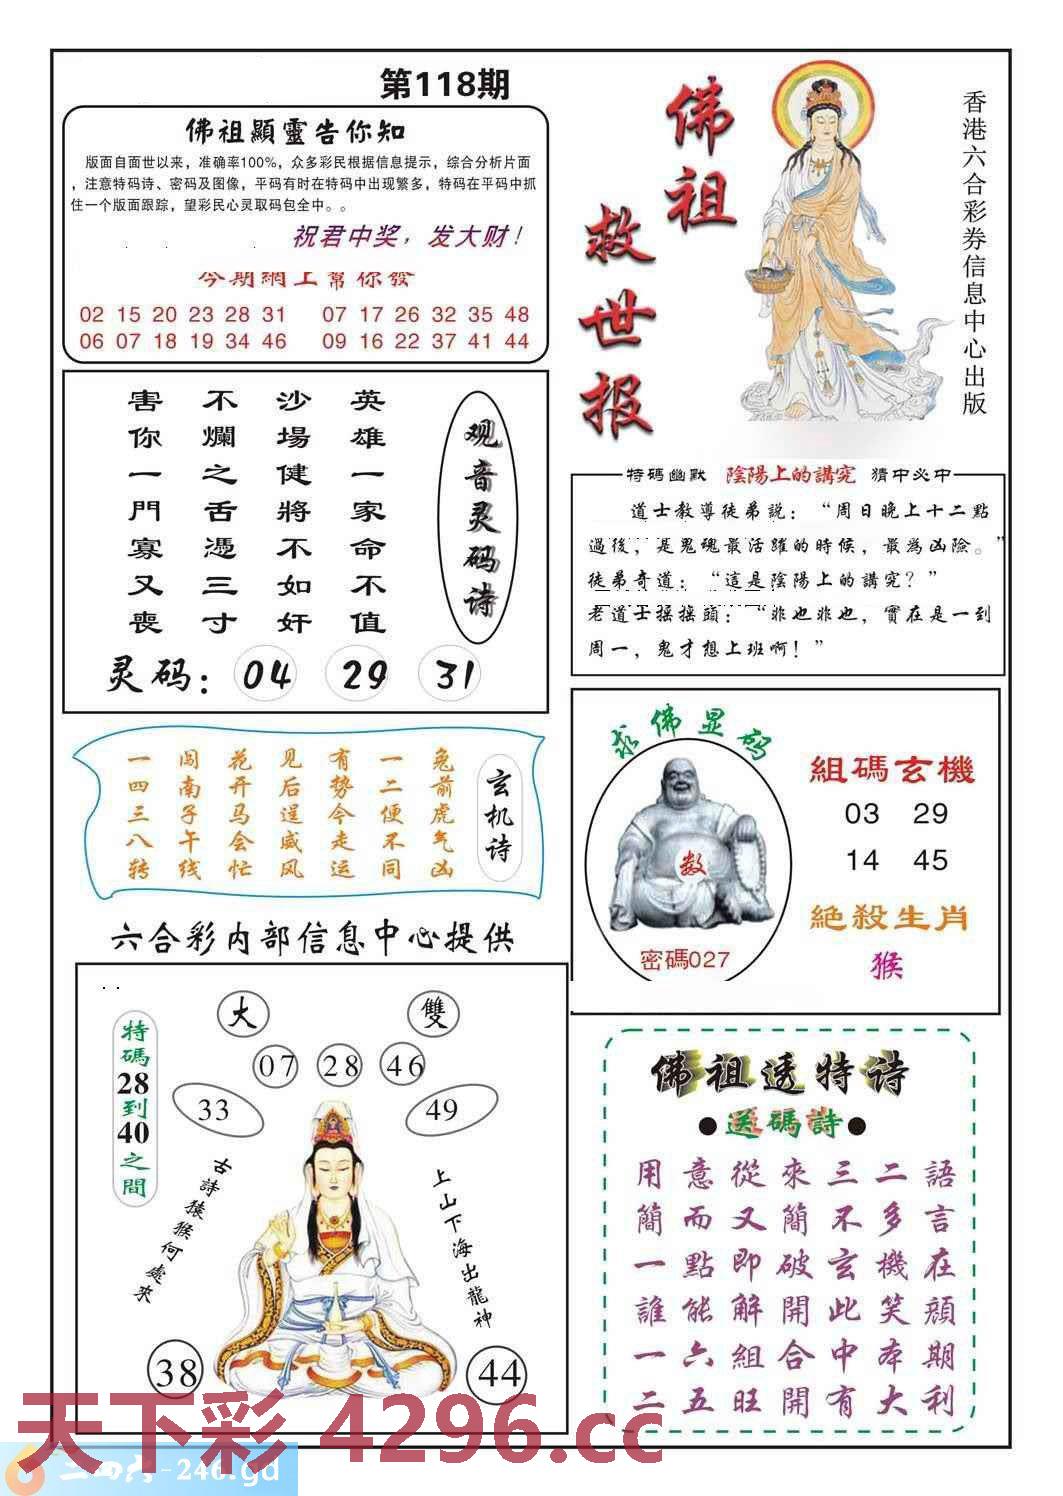 第118期
佛祖顯靈告你知
版面自面世以来，准确率100%，众多彩民根据信息提示，综合分析片面
，注意特码诗、密码及图像，平码有时在特码中出现繁多，特码在平码中抓
住一个版面跟踪，望彩民心灵取码包全中。。
祝君中奖，发大财！
今期網上幫你發
02 15 20 23 28 31 07 17 26 32 35 48
06 07 18 19 34 46 09 16 22 37 41 44
佛祖
救世报
香港六合彩券信息中心出版
观音灵码诗
英雄一家命不值
沙場健將不如奸
不爛之舌憑三寸
害你一門寡又喪
灵码：04 29 31
特碼幽默 陰陽上的講究 猜中必中
道士教導徒弟説：“周日晚上十二點
過後，是鬼魂最活躍的時候，最為凶險。”
徒弟奇道：“這是陰陽上的講究？”
老道士摇摇頭：“非也非也，實在是一到
周一，鬼才想上班啊！”
玄机诗
兔前虎气凶
一二便不同
有势今走运
见后逞威风
花开马会忙
闯南子午线
一四三八转
求佛显码
数
密碼027
組碼玄機
03 29
14 45
絕殺生肖
猴
六合彩内部信息中心提供
特碼28到40之間
大
雙
07 28 46
33
49
古詩猿猴何處來
上山下海出龍神
38
44
佛祖透特诗
●送碼詩●
用意從來三二語
簡而又簡不多言
一點即破玄機在
誰能解開此笑顔
一六組合中本期
二五旺開有大利
天下彩 4296.cc
二四六-246.gd